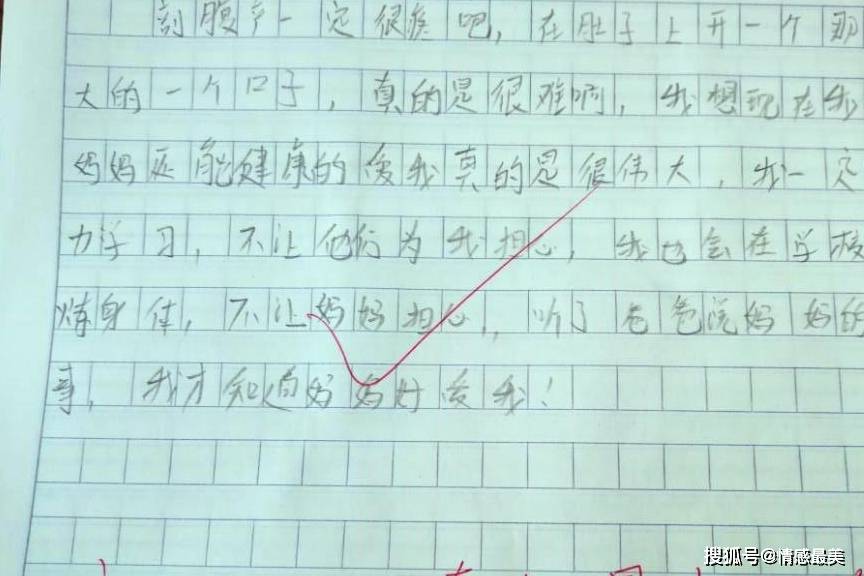 剖腹产一定很疼吧,在肚子上开一个那
大的一个口子,真的是很难啊,我想现在我
妈妈还能健康的爱我真的是很伟大,我一定
力学习,不让他们为我担心,我也会在学校
炼身体,不让妈妈担心,听了爸爸说妈妈的
事,我才知道妈妈好爱我!
搜狐号@情感最美